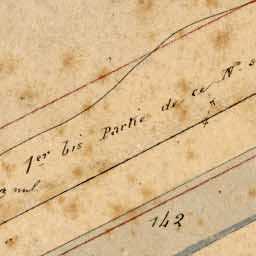 1er bis Partie de ce No s
nul.
142